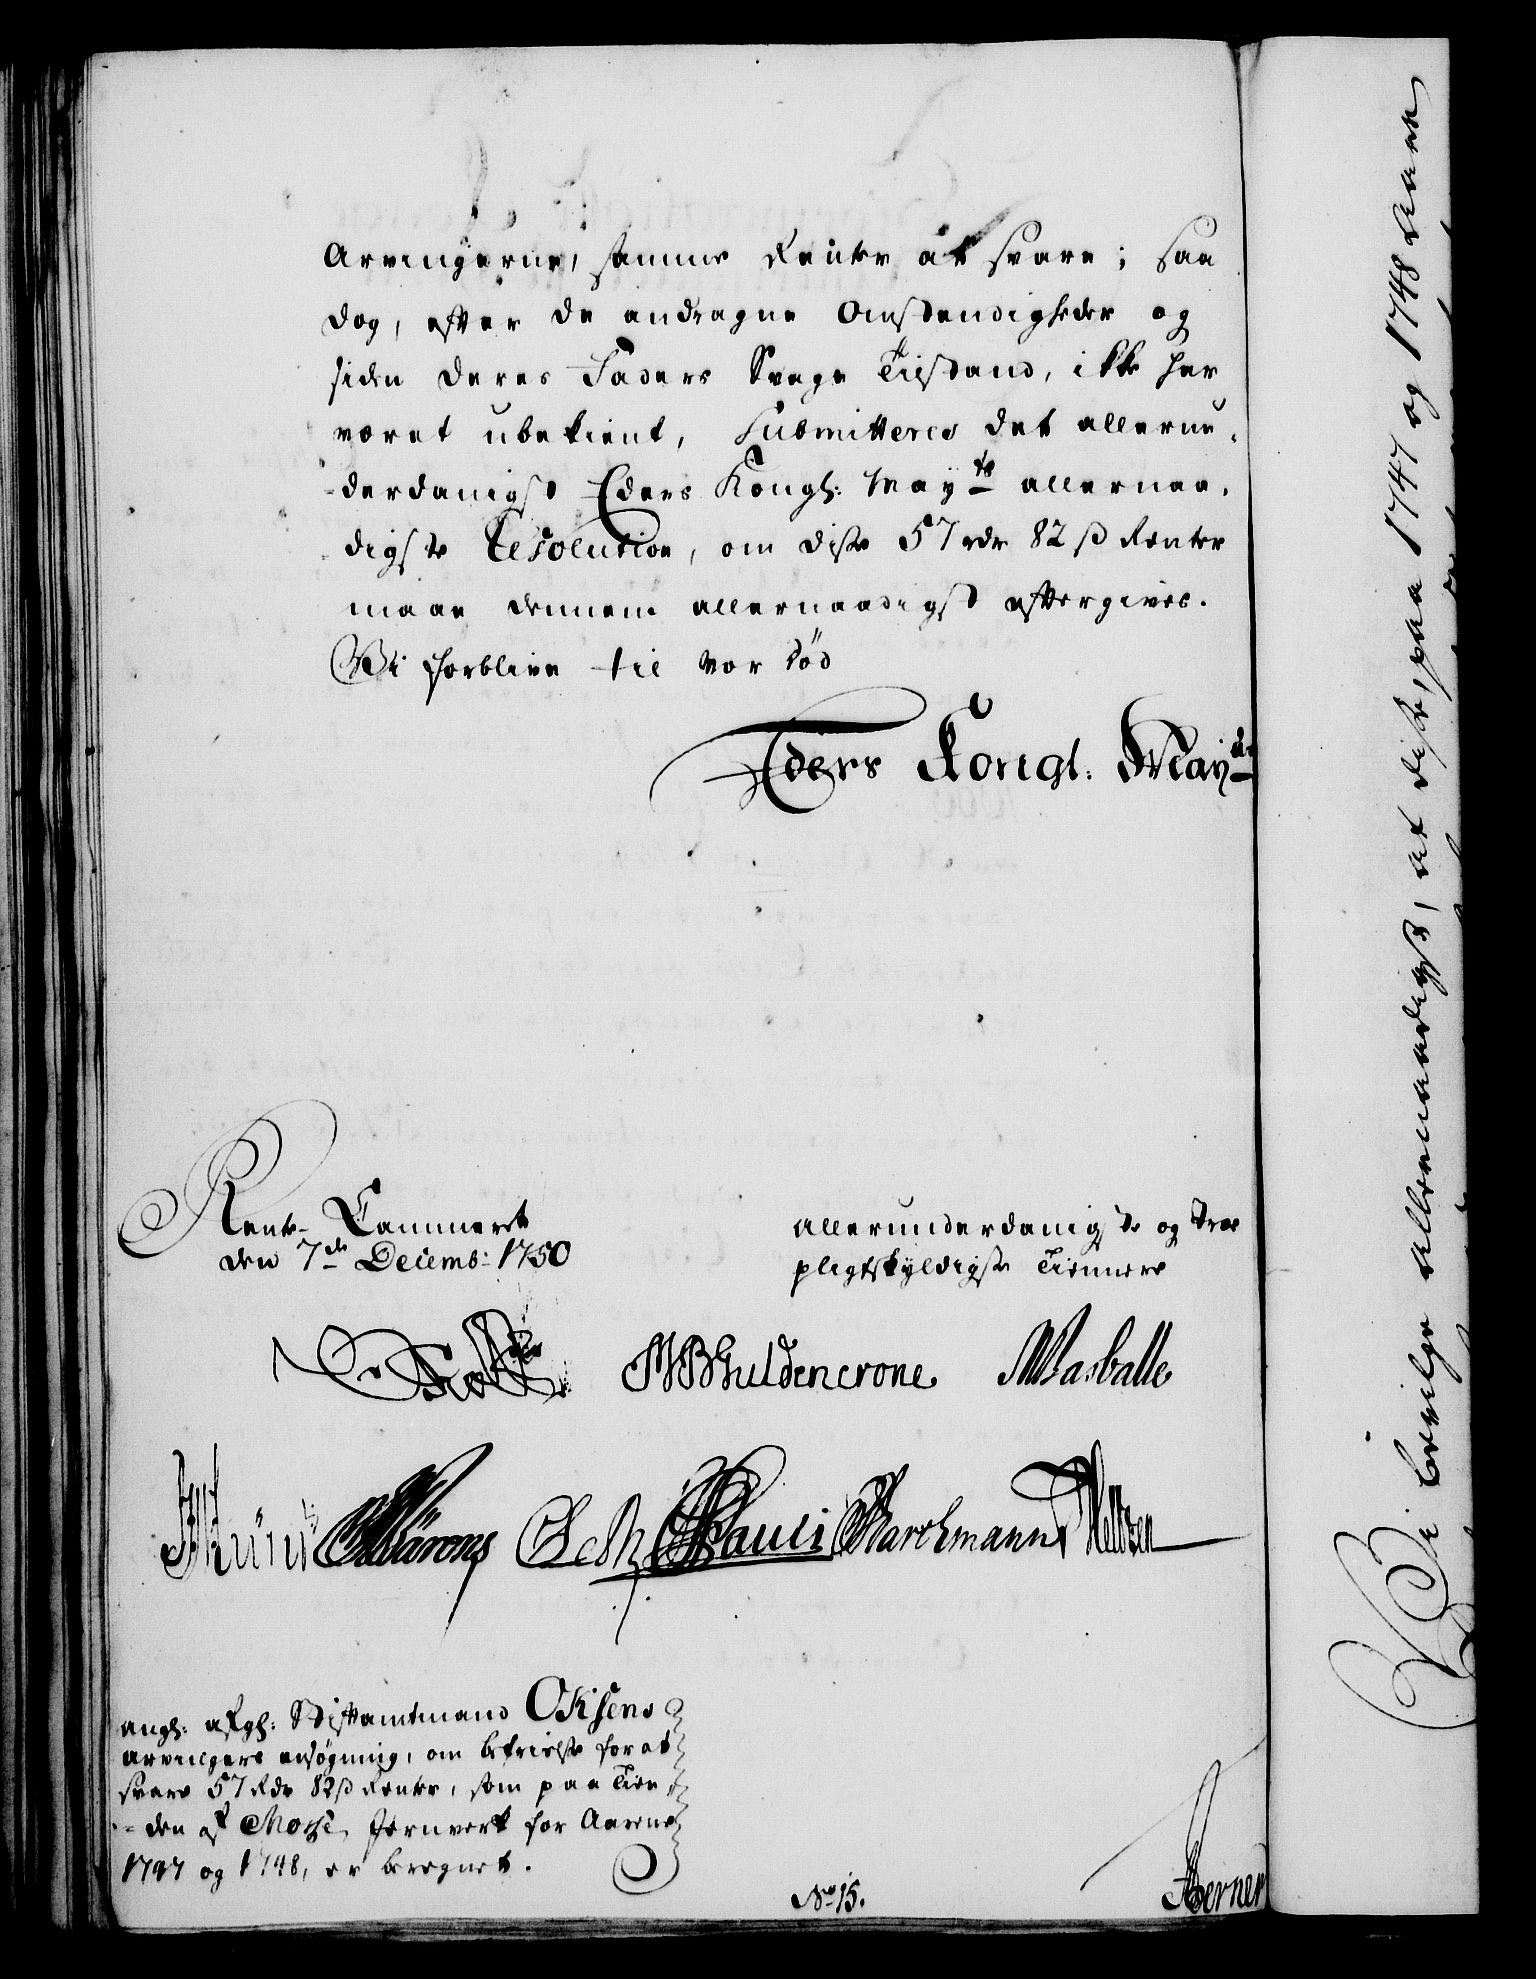 Arvingerne, samme Renter at svare; saa
dog, efter de andragne Omstendigheder og
siden deres Faders Svage Tilstand, ikke har
været ubekient, Submitteres det allerun-
derdanigst Eders Kongl: May^ts allernaa-
digste Resolution, om disse 57 rdr 82 ß Renter
maae dennem allernaadigst eftergives.
Vi forblive til vor död
Eders Kongl: May^ts
Rente-Cammeret
den 7^de Decemb: 1750
allerunderdanigste og troe
pligtskyldigste Tiennere
Güldencrone Wasballe
Kärong Pauli Barchmann Neltzen
angl: afgl: Stiftamtmand Oksens
Arvingers ansøgning, om befrielse for at
svare 57 Rdr 82 ß Renter, som paa Tien-
den af Mosse Jernverk for Aarene
1747 og 1748, er beregnet.
No 15.
Berner
Vi bevilge allernaadigst, at disse, paa 1747 og 1748 Aars